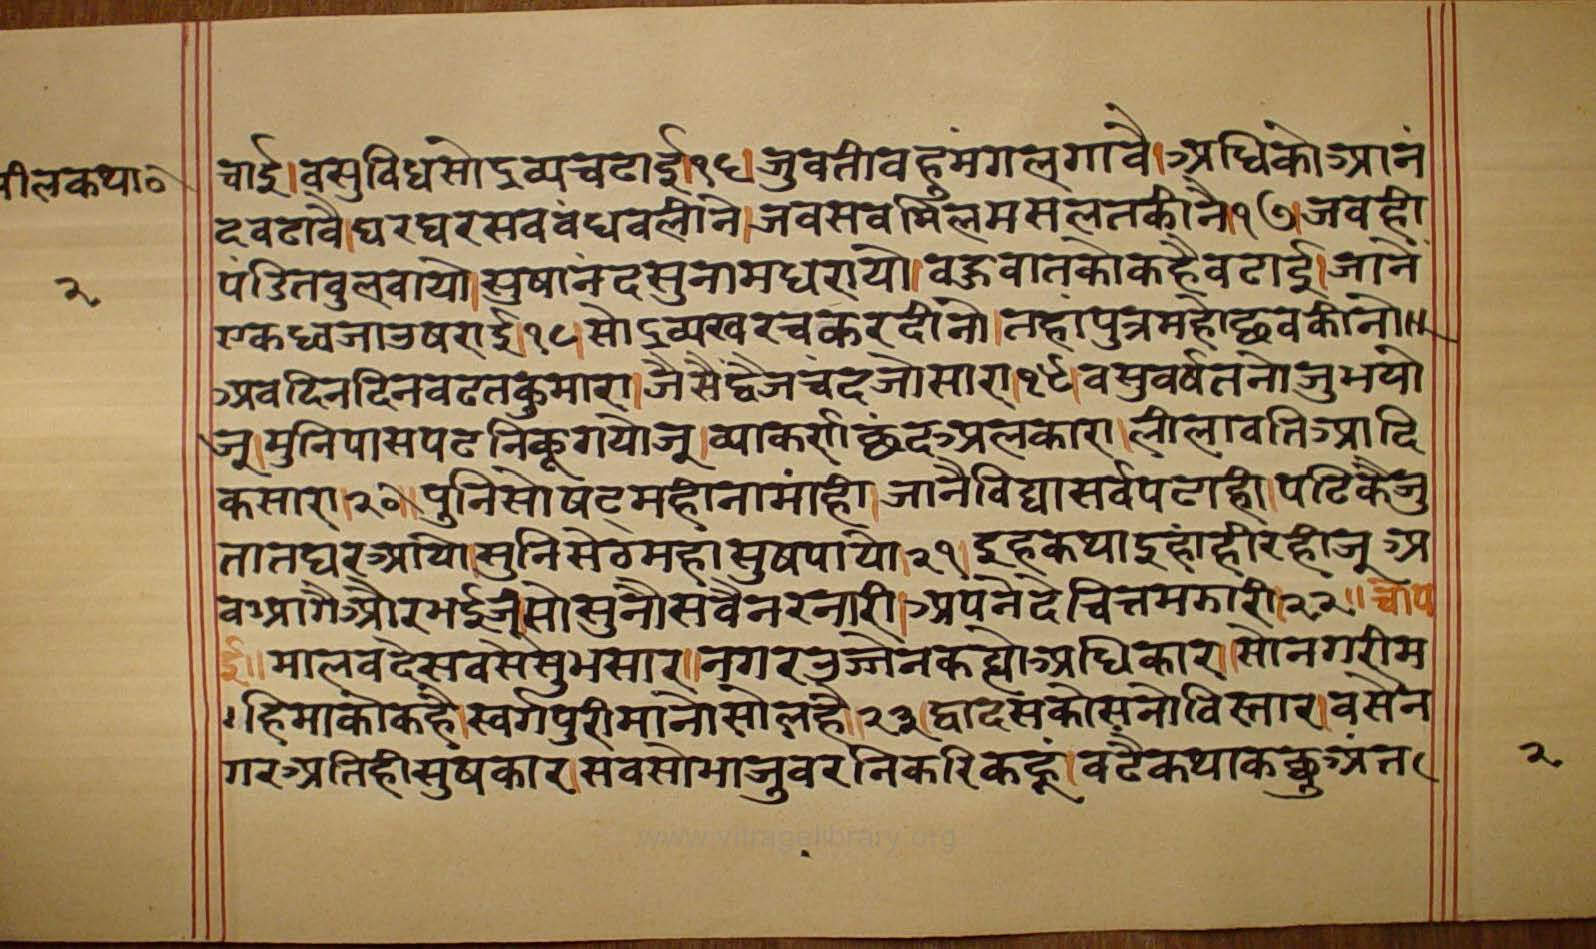 सीलकथा०
२
चाई।वसुविधसोद्रव्यचढाई।१६।जुवतीवहुमंगलगावै।अधिकोआनं
दवढावै।घरघरसववंधवलीने।जवसवमिलमसलतकीनै।१७।जवही
पंडितवुलवायो।सुषानंदसुनामधरायो।वऊवातकोकहैवढाई।जानै
एकध्वजाउषराई।१८।सोद्रव्यखरचकरदीनो।तहांपुत्रमहोछवकीनो॥
अवदिनदिनवढतकुमारा।जैसैंद्वैजचंदजोसारा।१९।वसुवर्षतनोजुभयो
जू।मुनिपासपढनिकूगयोजू।व्याकर्णछंदअलकारा।लीलावतिआदि
कसारा।२०।पुनिसोषट्महीनामांही।जानैविद्यासर्वपढाही।पढिकैजु
तातघरआयो।सुनिसेठमहासुषपायो।२१।इहकथाइहांहीरहीजू।अ
वआगैऔरभईजू।सोसुनौसवैनरनारी।अपनैदेचित्तमझारी।२२॥चौप
ई॥मालवदेसवसैसुभसार॥नगरउज्जैनकह्योअधिकार॥सोनगरीम
हिमाकोकहै।स्वर्गपुरीमानोसोलहै।२३।द्वादसकोसनौविस्तार।वसैन
गरअतिहीसुषकार।सवसोभाजुवरनिकरिकहूं।वढैकथाकछुअंत
२
www.vitragelibrary.org